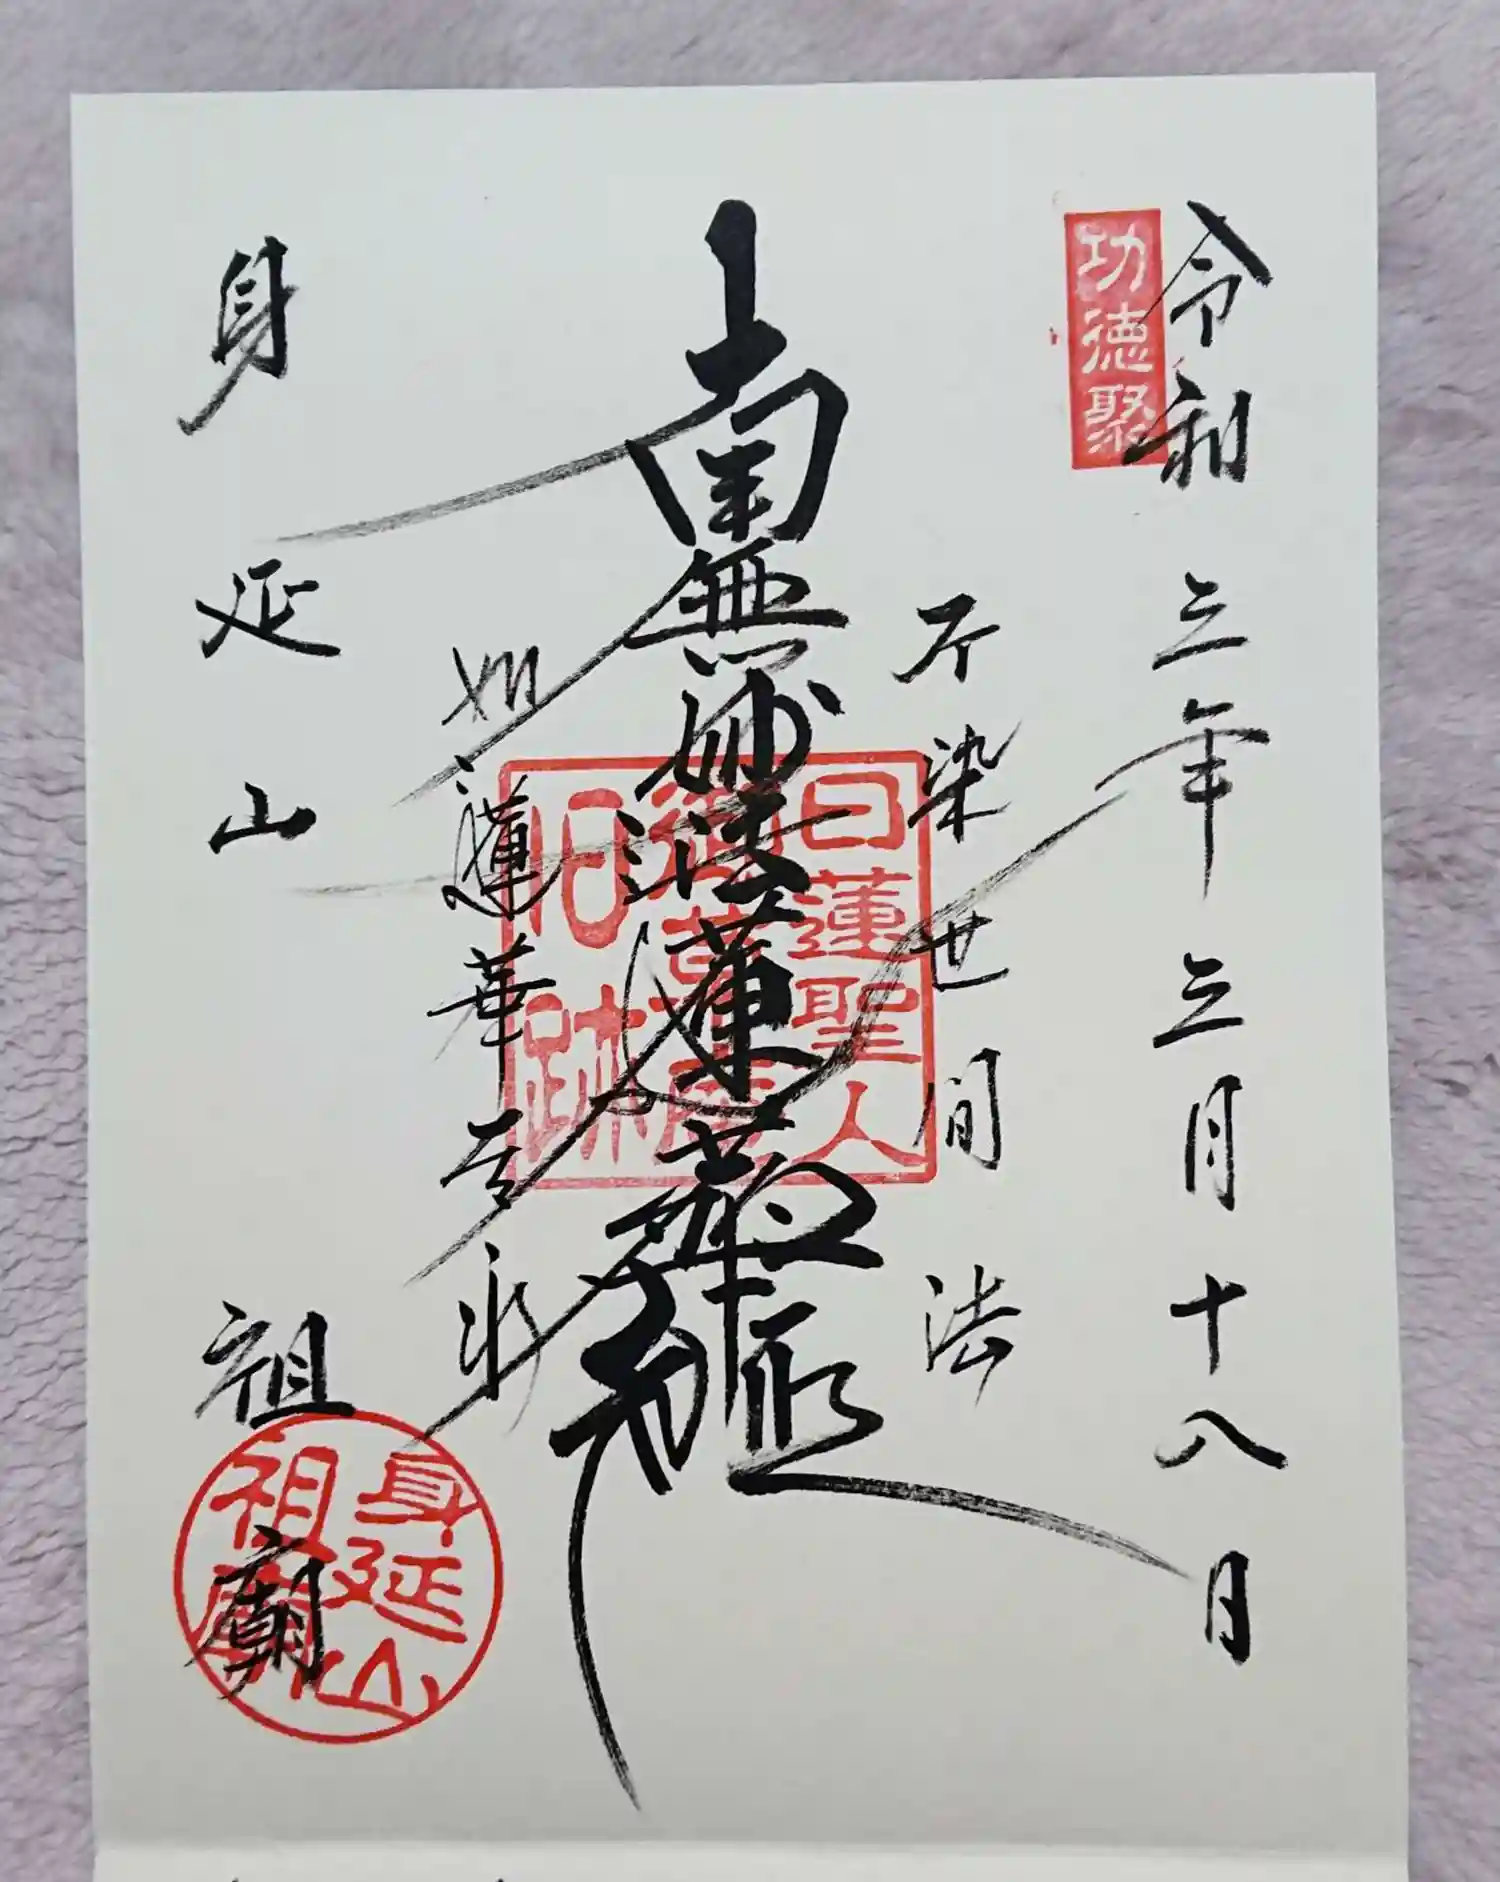 令和三年三月十八日
功徳聚
不染世間法
南無妙法蓮華経
日蓮聖人
御草庵
旧跡
如蓮華在水
身延山
祖廟
身延山
祖廟